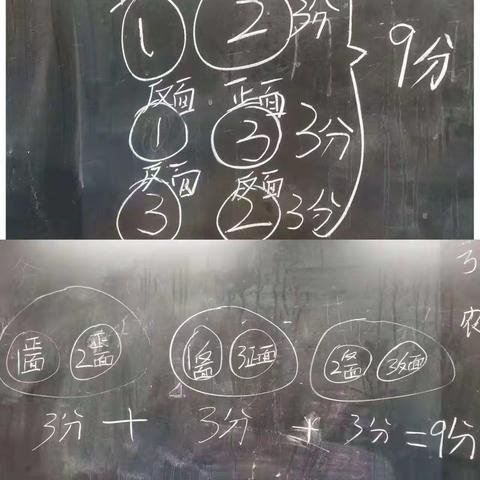 1 2 3分
9分
反面 正面
1 3 3分
反面 反面
3 2 3分
1正面 2正面 1反面 3正面 2反面 3反面
3分 + 3分 + 3分 = 9分